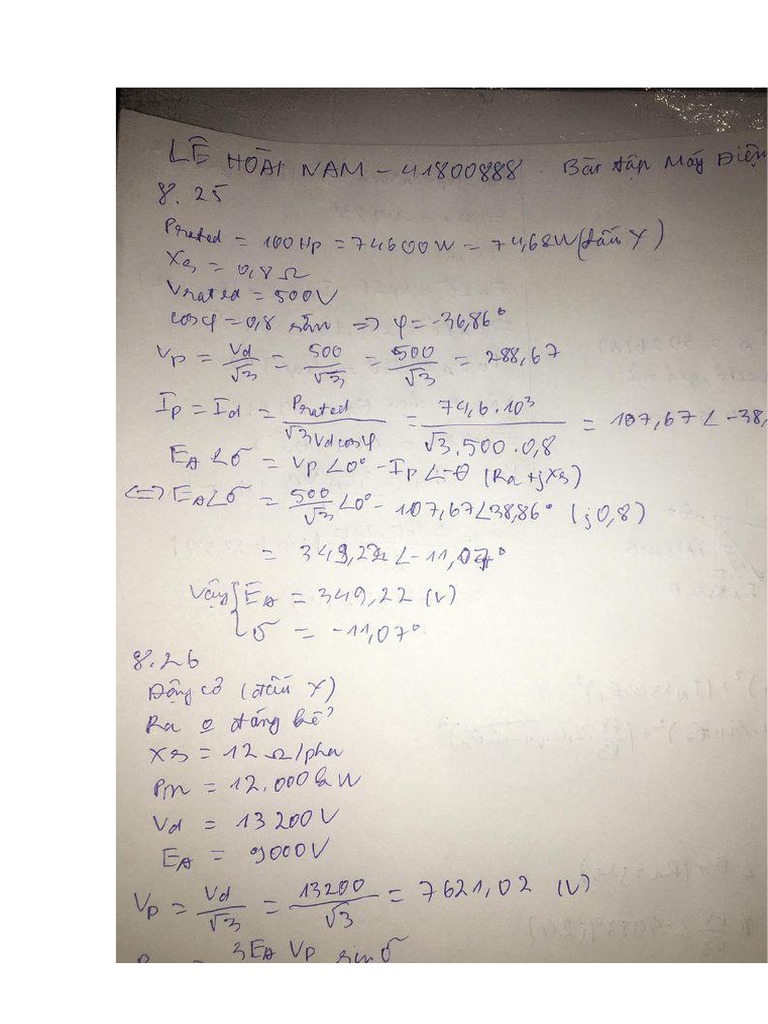 LÊ HOÀI NAM – 41800888. Bài tập Máy Điện
8.25
Prated = 100Hp = 74600W = 74,6kW (đấu Y)
Xs = 0,8Ω
Vrated = 500V
cosφ = 0,8 sớm => φ = -36,86°
Vp = Vd/√3 = 500/√3 = 500/√3 = 288,67
Ip = Id = Prated/(√3Vdcosφ) = 74,6.10³/(√3.500.0,8) = 107,67∠-38,
EA∠σ = Vp∠0° - Ip∠-θ (Ra+jXs)
<=> EA∠σ = 500/√3∠0° - 107,67∠38,86° (j0,8)
= 349,22∠-11,07°
Vậy { EA = 349,22 (V)
σ = -11,07°
8.26
Động cơ (đấu Y)
Ra o đáng kể
Xs = 12Ω/pha
Pm = 12.000kW
Vd = 13200V
EA = 9000V
Vp = Vd/√3 = 13200/√3 = 7621,02 (V)
3EA Vp sinσ